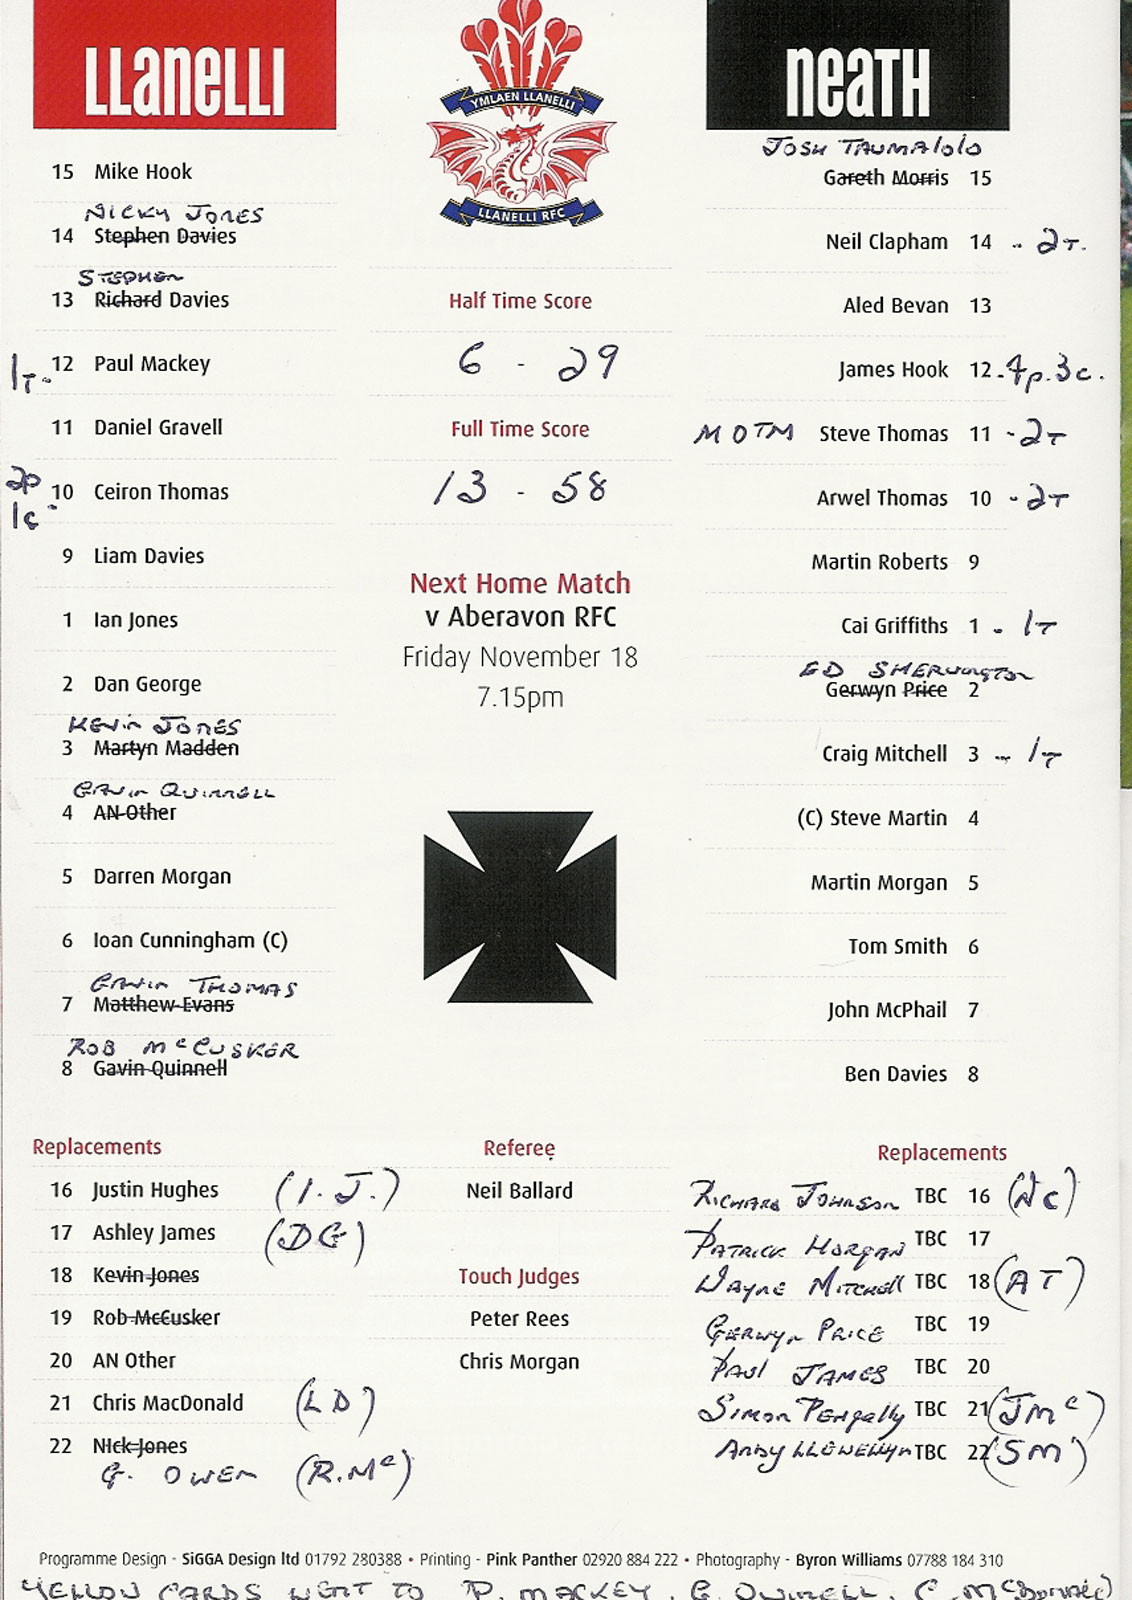 LLanELLI
YMLAEN LLANELLI
LLANELLI RFC
neaTH
15 Mike Hook
NICKY JONES
14 Stephen Davies
STEPHEN
13 Richard Davies
1T- 12 Paul Mackey
11 Daniel Gravell
2p
1c - 10 Ceiron Thomas
9 Liam Davies
1 Ian Jones
2 Dan George
KEVIN JONES
3 Martyn Madden
GAVIN QUINNELL
4 AN Other
5 Darren Morgan
6 Ioan Cunningham (C)
GAVIN THOMAS
7 Matthew Evans
ROB McCUSKER
8 Gavin Quinnell
Half Time Score
6 - 29
Full Time Score
13 - 58
Next Home Match
v Aberavon RFC
Friday November 18
7.15pm
JOSH TAUMALOLO
Gareth Morris 15
Neil Clapham 14 - 2T.
Aled Bevan 13
James Hook 12 - 4p. 3c.
MOTM Steve Thomas 11 - 2T
Arwel Thomas 10 - 2T
Martin Roberts 9
Cai Griffiths 1 - 1T
ED SHERVINGTON
Gerwyn Price 2
Craig Mitchell 3 - 1T
(C) Steve Martin 4
Martin Morgan 5
Tom Smith 6
John McPhail 7
Ben Davies 8
Replacements
16 Justin Hughes (I.J.)
17 Ashley James (DG)
18 Kevin Jones
19 Rob McCusker
20 AN Other
21 Chris MacDonald (LD)
22 Nick Jones
G. OWEN (R.Mc)
Referee
Neil Ballard
Touch Judges
Peter Rees
Chris Morgan
Replacements
RICHARD JOHNSON TBC 16 (NC)
PATRICK HORGAN TBC 17
WAYNE MITCHELL TBC 18 (AT)
GERWYN PRICE TBC 19
PAUL JAMES TBC 20
SIMON PENGALLY TBC 21 (JMc)
ANDY LLEWELLYN TBC 22 (SM)
Programme Design - SiGGA Design ltd 01792 280388 • Printing - Pink Panther 02920 884 222 • Photography - Byron Williams 07788 184 310
YELLOW CARDS WENT TO P. MACKEY, G. QUINNELL, C. McDONALD